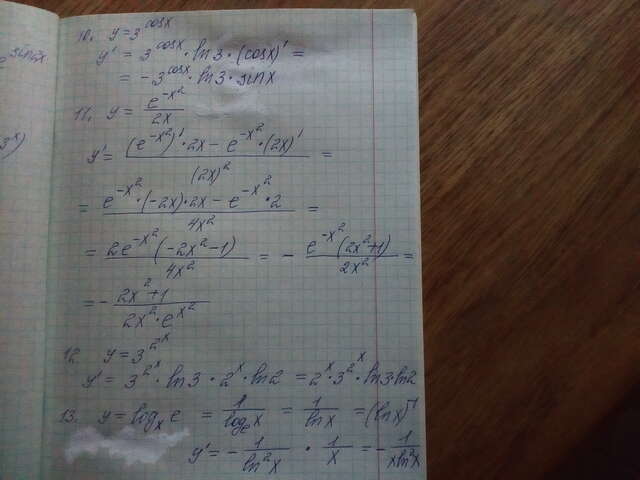 e^sin2x
3^x)
10. y=3^cosx
y' = 3^cosx · ln3 · (cosx)' =
= -3^cosx · ln3 · sinx
11. y = e^-x² / 2x
y' = ((e^-x²)' · 2x - e^-x² · (2x)') / (2x)² =
= (e^-x² · (-2x) · 2x - e^-x² · 2) / 4x² =
= 2e^-x² (-2x²-1) / 4x² = - e^-x² (2x²+1) / 2x² =
= - (2x²+1) / (2x² · e^x²)
12. y = 3^2^x
y' = 3^2^x · ln3 · 2^x · ln2 = 2^x · 3^2^x · ln3·ln2
13. y = log_x e = 1 / log_e x = 1 / lnx = (lnx)^-1
y' = - 1 / ln²x · 1 / x = - 1 / xln²x